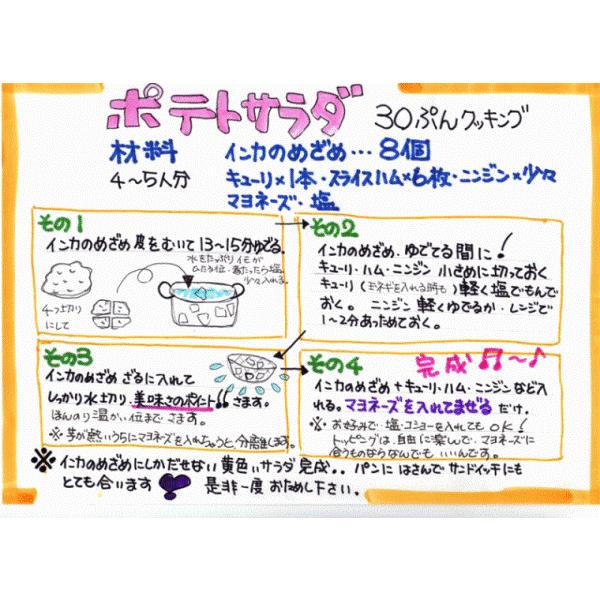 ポテトサラダ 30ぷんクッキング
材料 インカのめざめ…8個
4〜5人分 キューリ×1本・スライスハム×6枚・ニンジン×少々
マヨネーズ・塩
その1
インカのめざめ 皮をむいて13〜15分ゆでる。
水をたっぷりイモが
ひたる位・沸たったら塩
少々入れる。
4つ切り
にして
その2
インカのめざめ、ゆでてる間に!
キューリ・ハム・ニンジン 小さめに切っておく
キューリ(玉ネギを入れる時も)軽く塩でもんで
おく。 ニンジン 軽くゆでるか・レンジで
1〜2分あっためておく。
その3
インカのめざめ ざるに入れて
しっかり水切り、美味さのポイント!! さます。
ほんのり温かい位まで さます。
※ 芋が熱いうちにマヨネーズを入れちゃうと、分離します。
その4 完成♫〜♪
インカのめざめ+キューリ・ハム・ニンジンなど入
れる。マヨネーズを入れてまぜる だけ.
※ お好みで、塩・コショーを入れても OK!
トッピングは、自由に楽しんで、マヨネーズに
合うものならなんでも いいんです。
※ インカのめざめにしかだせない 黄色いサラダ 完成.. パンに はさんで サンドイッチにも
とても合います 是非一度 おためし下さい。